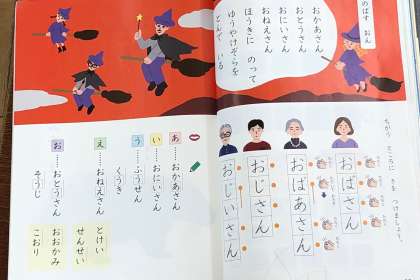 のばす おん
おかあさん
おとうさん
おにいさん
おねえさん
ほうきに のって
ゆうやけぞらを
とんで いる
ちがう ところに 気を つけましょう。
おばさん
おばあさん
おじさん
おじいさん
あ……おかあさん
い……おにいさん
う……ふうせん
くうき
え……おねえさん
お……おとうさん
そうじ
とけい
せんせい
おおかみ
こおり